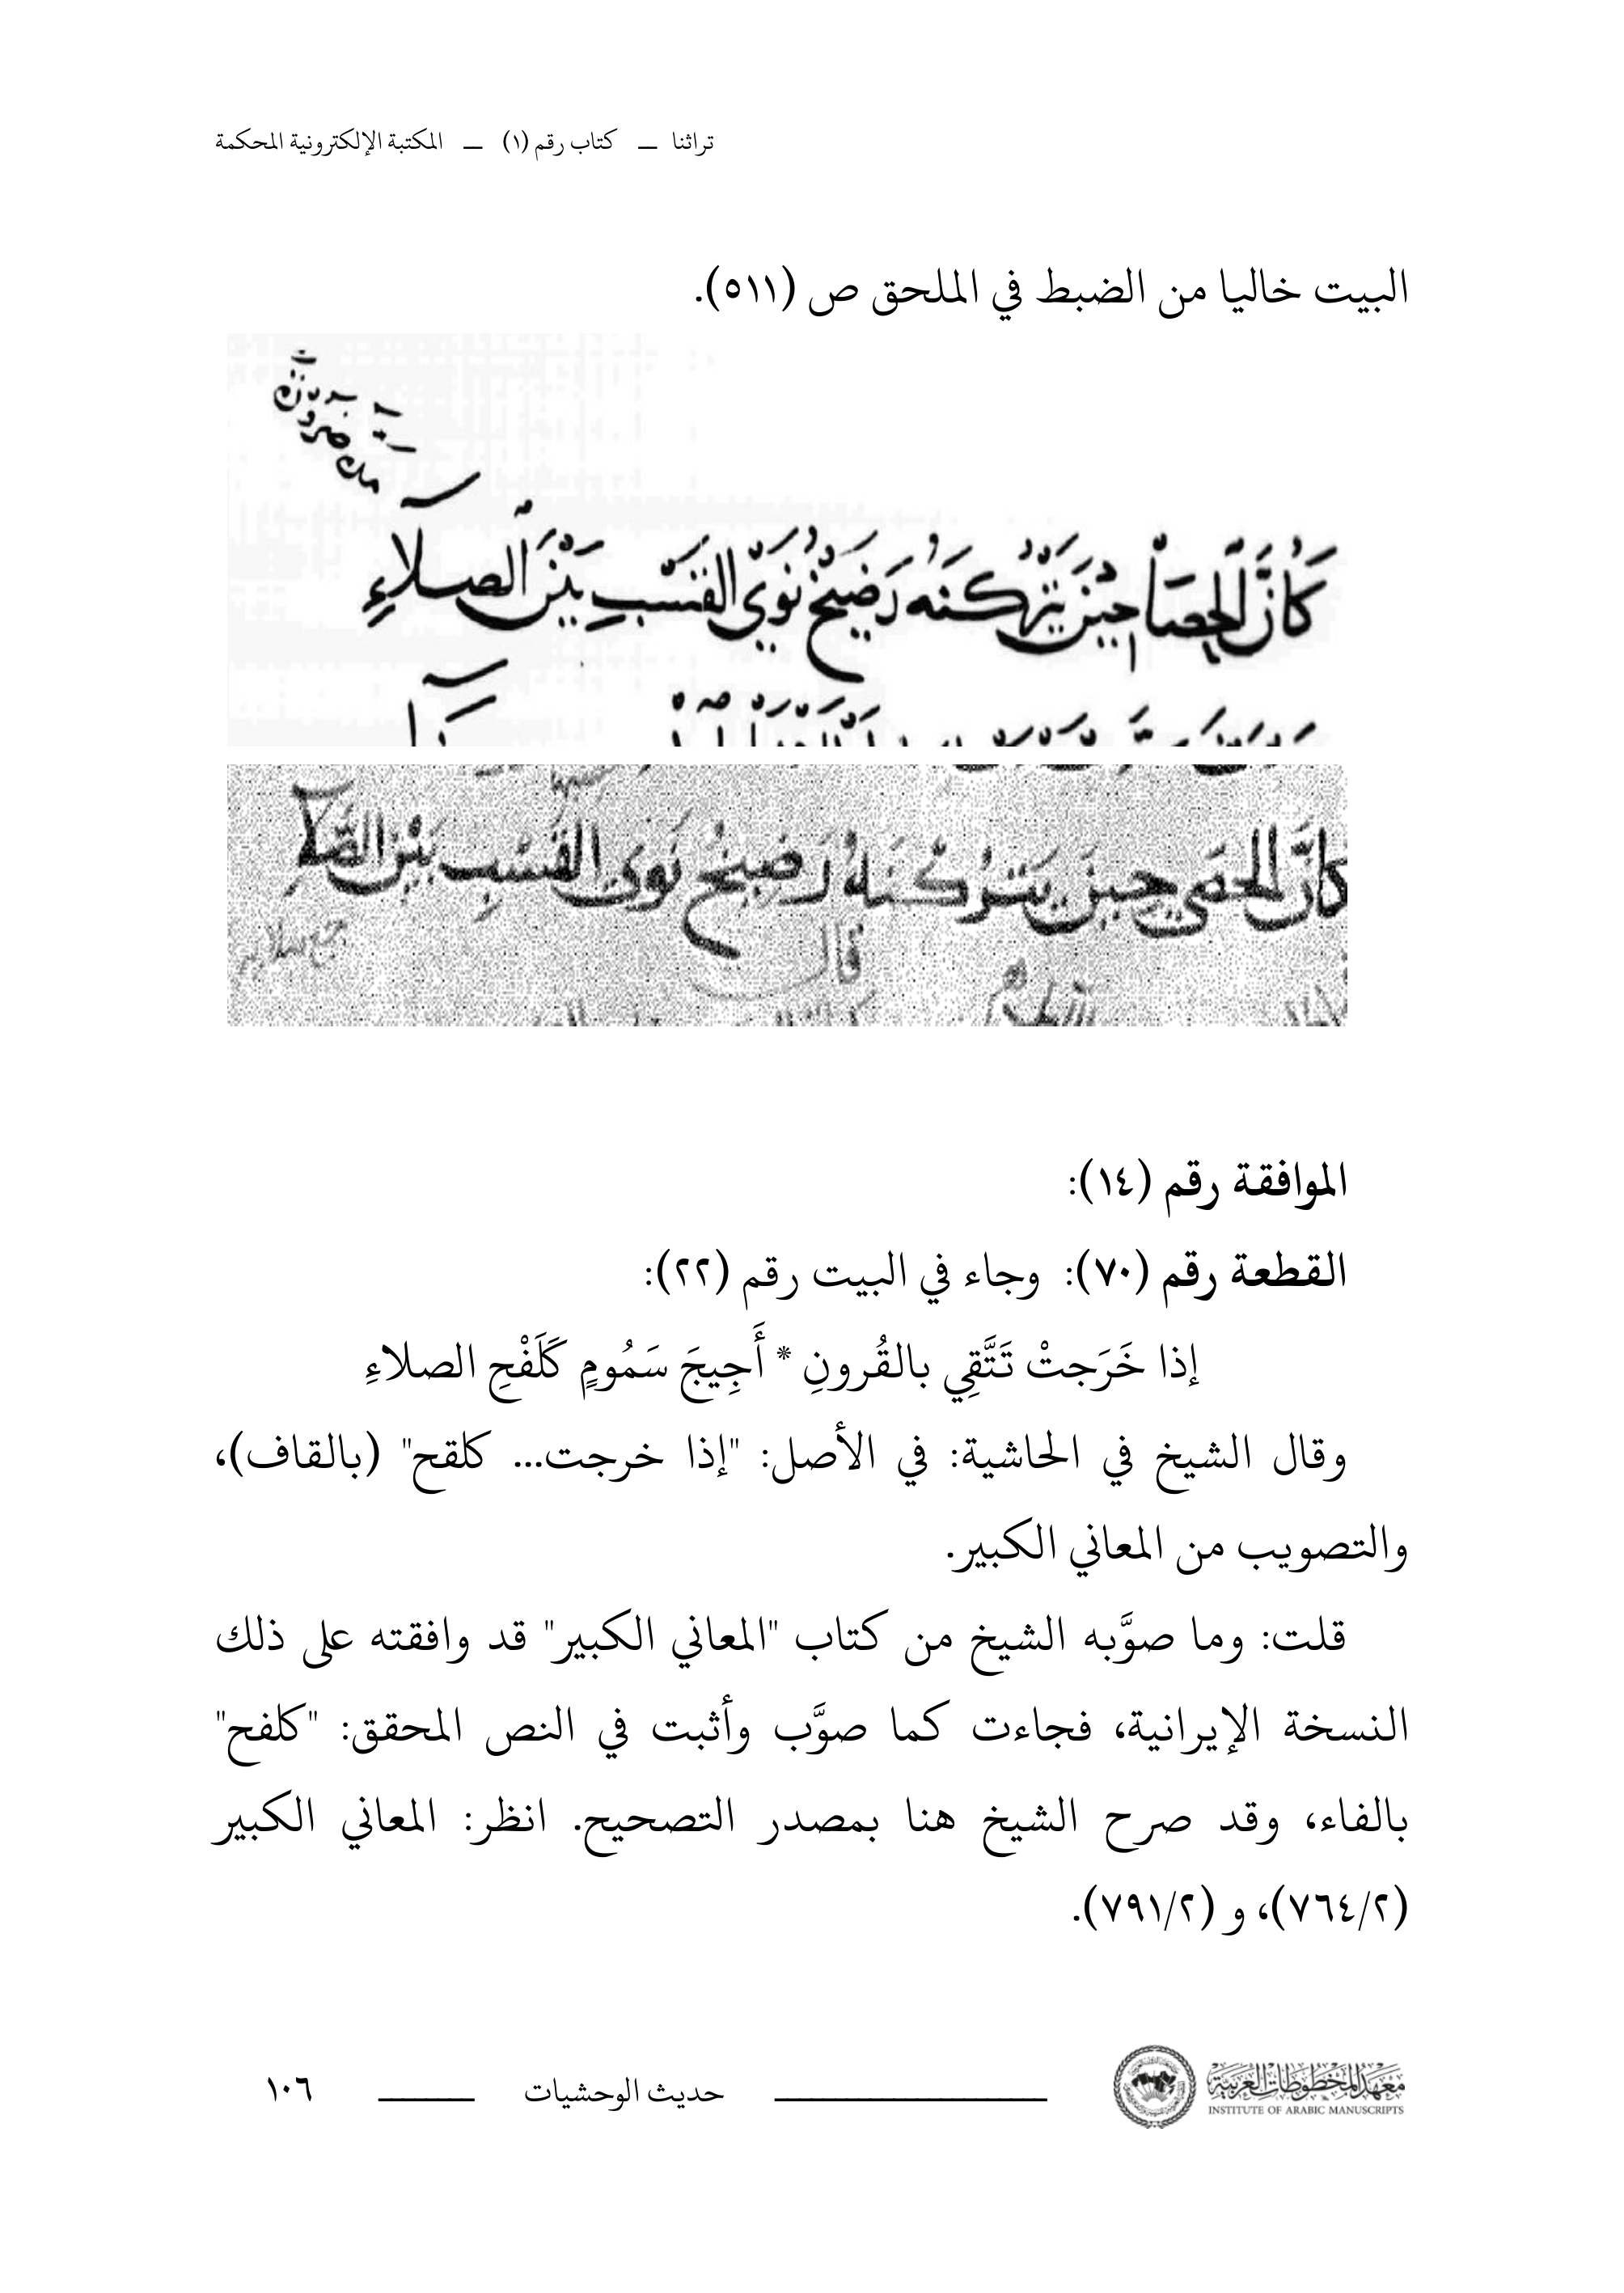 تراثنا ــ كتاب رقم (١) ــ المكتبة الإلكترونية المحكمة
البيت خاليا من الضبط في الملحق ص (٥١١).
كَأَنَّ الحصَا حِيْنَ يَتْرُكْنَهُ رَضِيْخُ نَوَى القَسْبِ بَيْنَ الصلاءِ
كأنَّ الحَصَى حِينَ يَتْرُكْنَهُ رَضيخُ نَوَى القَسْبِ بَيْنَ الصَّلاءِ
قال
الموافقة رقم (١٤):
القطعة رقم (٧٠): وجاء في البيت رقم (٢٢):
إذا خَرَجتْ تَتَّقِي بالقُرونِ * أَجِيجَ سَمُومٍ كَلَفْحِ الصلاءِ
وقال الشيخ في الحاشية: في الأصل: "إذا خرجت... كلقح" (بالقاف)،
والتصويب من المعاني الكبير.
قلت: وما صوَّبه الشيخ من كتاب "المعاني الكبير" قد وافقته على ذلك
النسخة الإيرانية، فجاءت كما صوَّب وأثبت في النص المحقق: "كلفح"
بالفاء، وقد صرح الشيخ هنا بمصدر التصحيح. انظر: المعاني الكبير
(٧٦٤/٢)، و (٧٩١/٢).
معهد المخطوطات العربية
INSTITUTE OF ARABIC MANUSCRIPTS
حديث الوحشيات
١٠٦